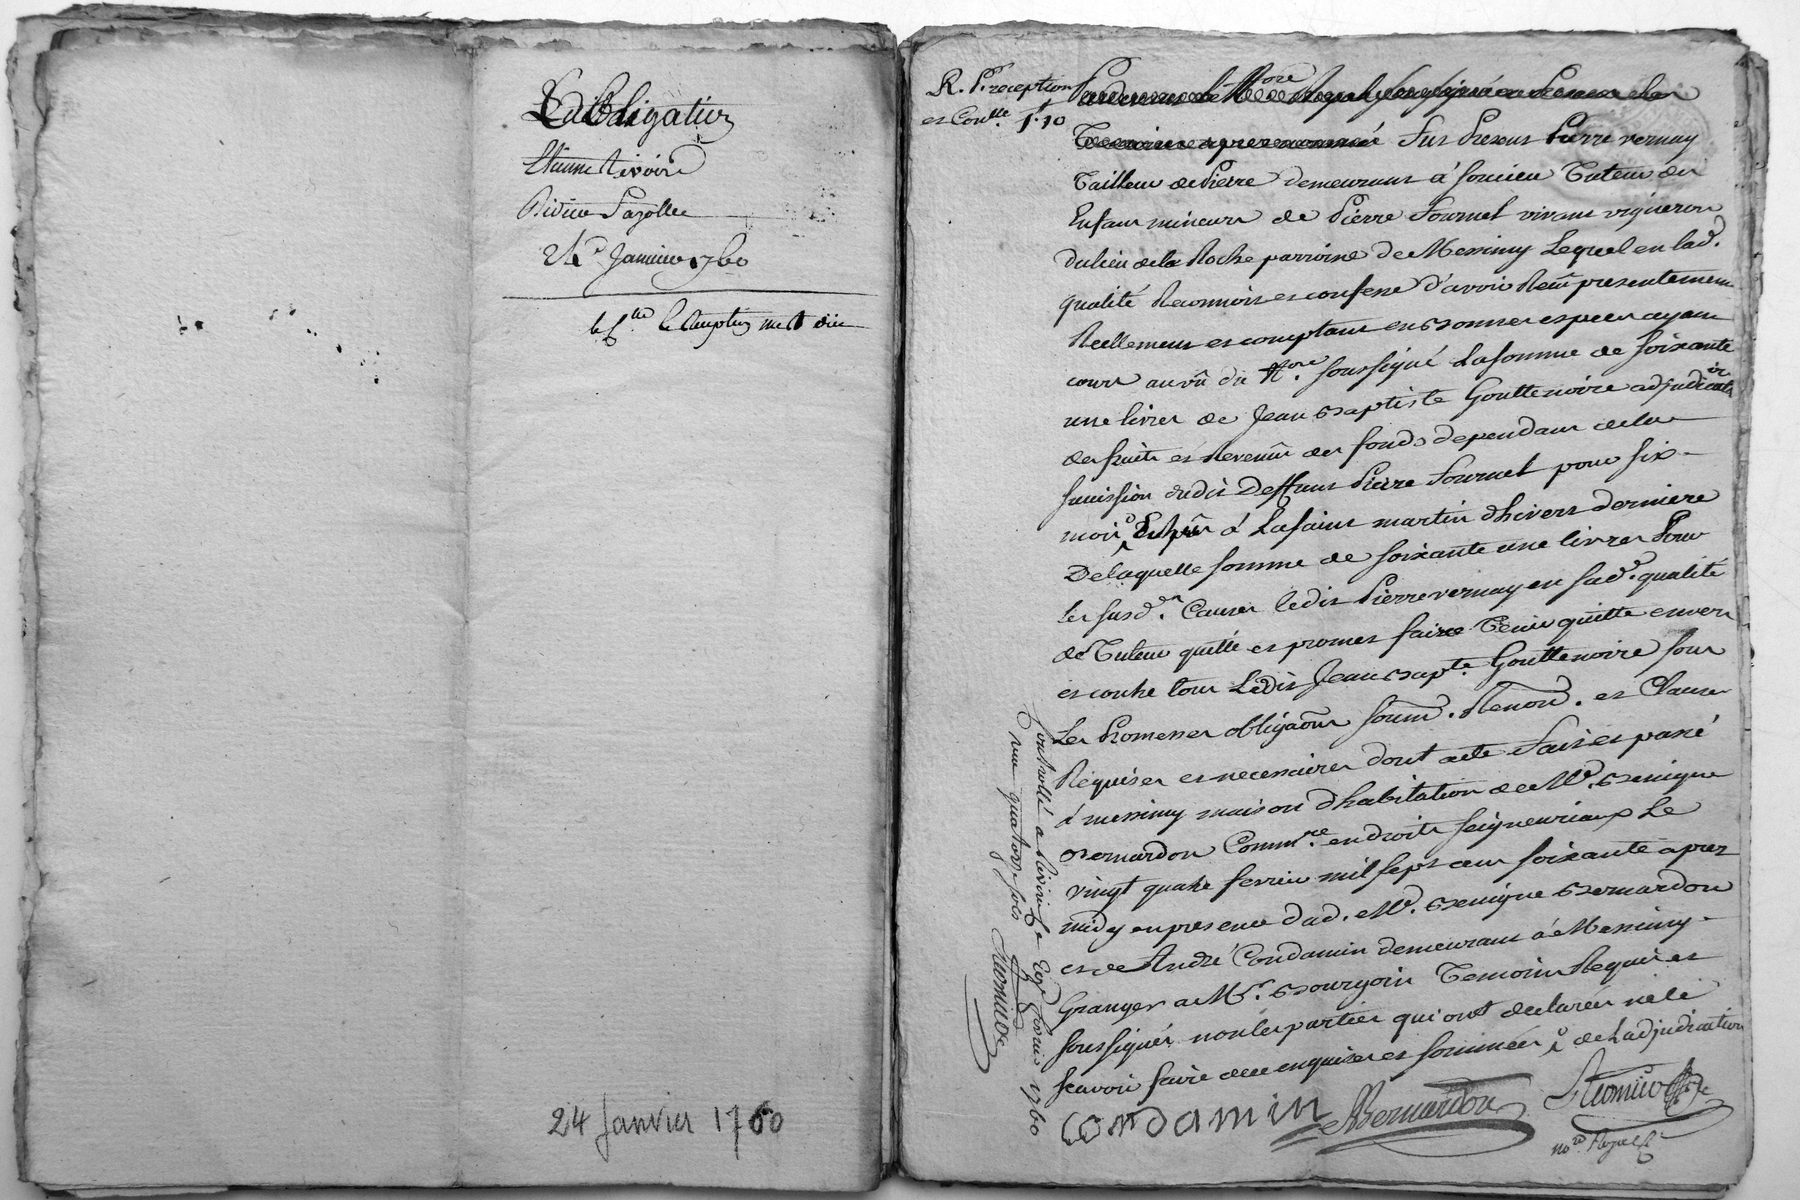 Obligation
Etienne Rivoire
24e Janvier 1760
24 Janvier 1760
R. Pr. reception
et Conlle. 1# 10
Fut Present Pierre vernay
Tailleur de Pierre demeurant á Soucieu Tuteur des
Enfans mineurs de Pierre Fournel vivant vigneron
du lieu de la Roche parroisse de Messimy Lequel en lad.
qualité Reconnoit et confesse d'avoir Receu presentement
Reellement et comptant en Bonnes especes ayant
cours au vû du Nore. soussigné La somme de soixante
une livres de Jean Baptiste Gouttenoire adjudicatre
des fruits et Revenus des fonds dependant de la
succession dudit Deffunt Pierre Fournel pour six
mois Echûs á La saint martin dhivers derniere
De laquelle somme de soixante une livres Pour
les susd. Causes ledit Pierre vernay en sad. qualité
de Tuteur quitte et promet faire Tenir quitte envers
et contre tous Ledit Jean Bapte. Gouttenoire sous
Les Promesses obligaons soum. Renon. et Clauses
Requises et necessaires dont acte Fait et passé
á messimy maison d'habitation de Me. Benigne
Bernardon Commre. en droits seigneuriaux Le
vingt quatre fevrier mil sept cent soixante apres
midy en presence dud. Me. Benigne Bernardon
et de André Condamin demeurant á Messimy
Granger de Mr. Bourgoin Temoins Requis et
soussignés non les parties qui ont declarées ne le
scavoir faire de ce enquises et sommées de L'adjudication
Condamin Bernardon
nore. Royal
Controllé a Riverie Le 1760
Reçu quatorze sols